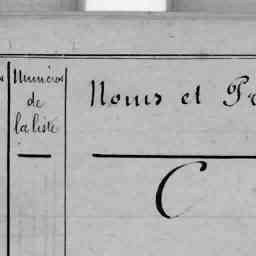 Numéros
de
la liste
Noms et Pr
C